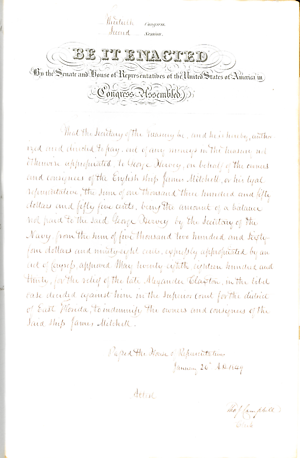 Thirtieth Congress
Second Session
BE IT ENACTED
By the Senate and House of Representatives of the United States of America in
Congress Assembled
That the Secretary of the Treasury be, and he is hereby, author
ized and directed to pay, out of any moneys in the Treasury not
otherwise appropriated, to George Harvey, on behalf of the owners
and consignees of the English ship James Mitchell, or his legal
representatives, the sum of one thousand three hundred and fifty
dollars and fifty five cents, being the amount of a balance
not paid to the said George Harvey by the Secretary of the
Navy, from the sum of five thousand two hundred and sixty
four dollars and ninety eight cents, expressly appropriated by an
act of Congress approved May twenty sixth, eighteen hundred and
for the relief of the late Alexander Claxton, in the libel
case decided against him in the Superior Court for the district
of East Florida, to indemnify the owners and consignees of the
said ship James Mitchell.
Passed the House of Representatives
January 26 1849
Attest
Campbell
Clerk